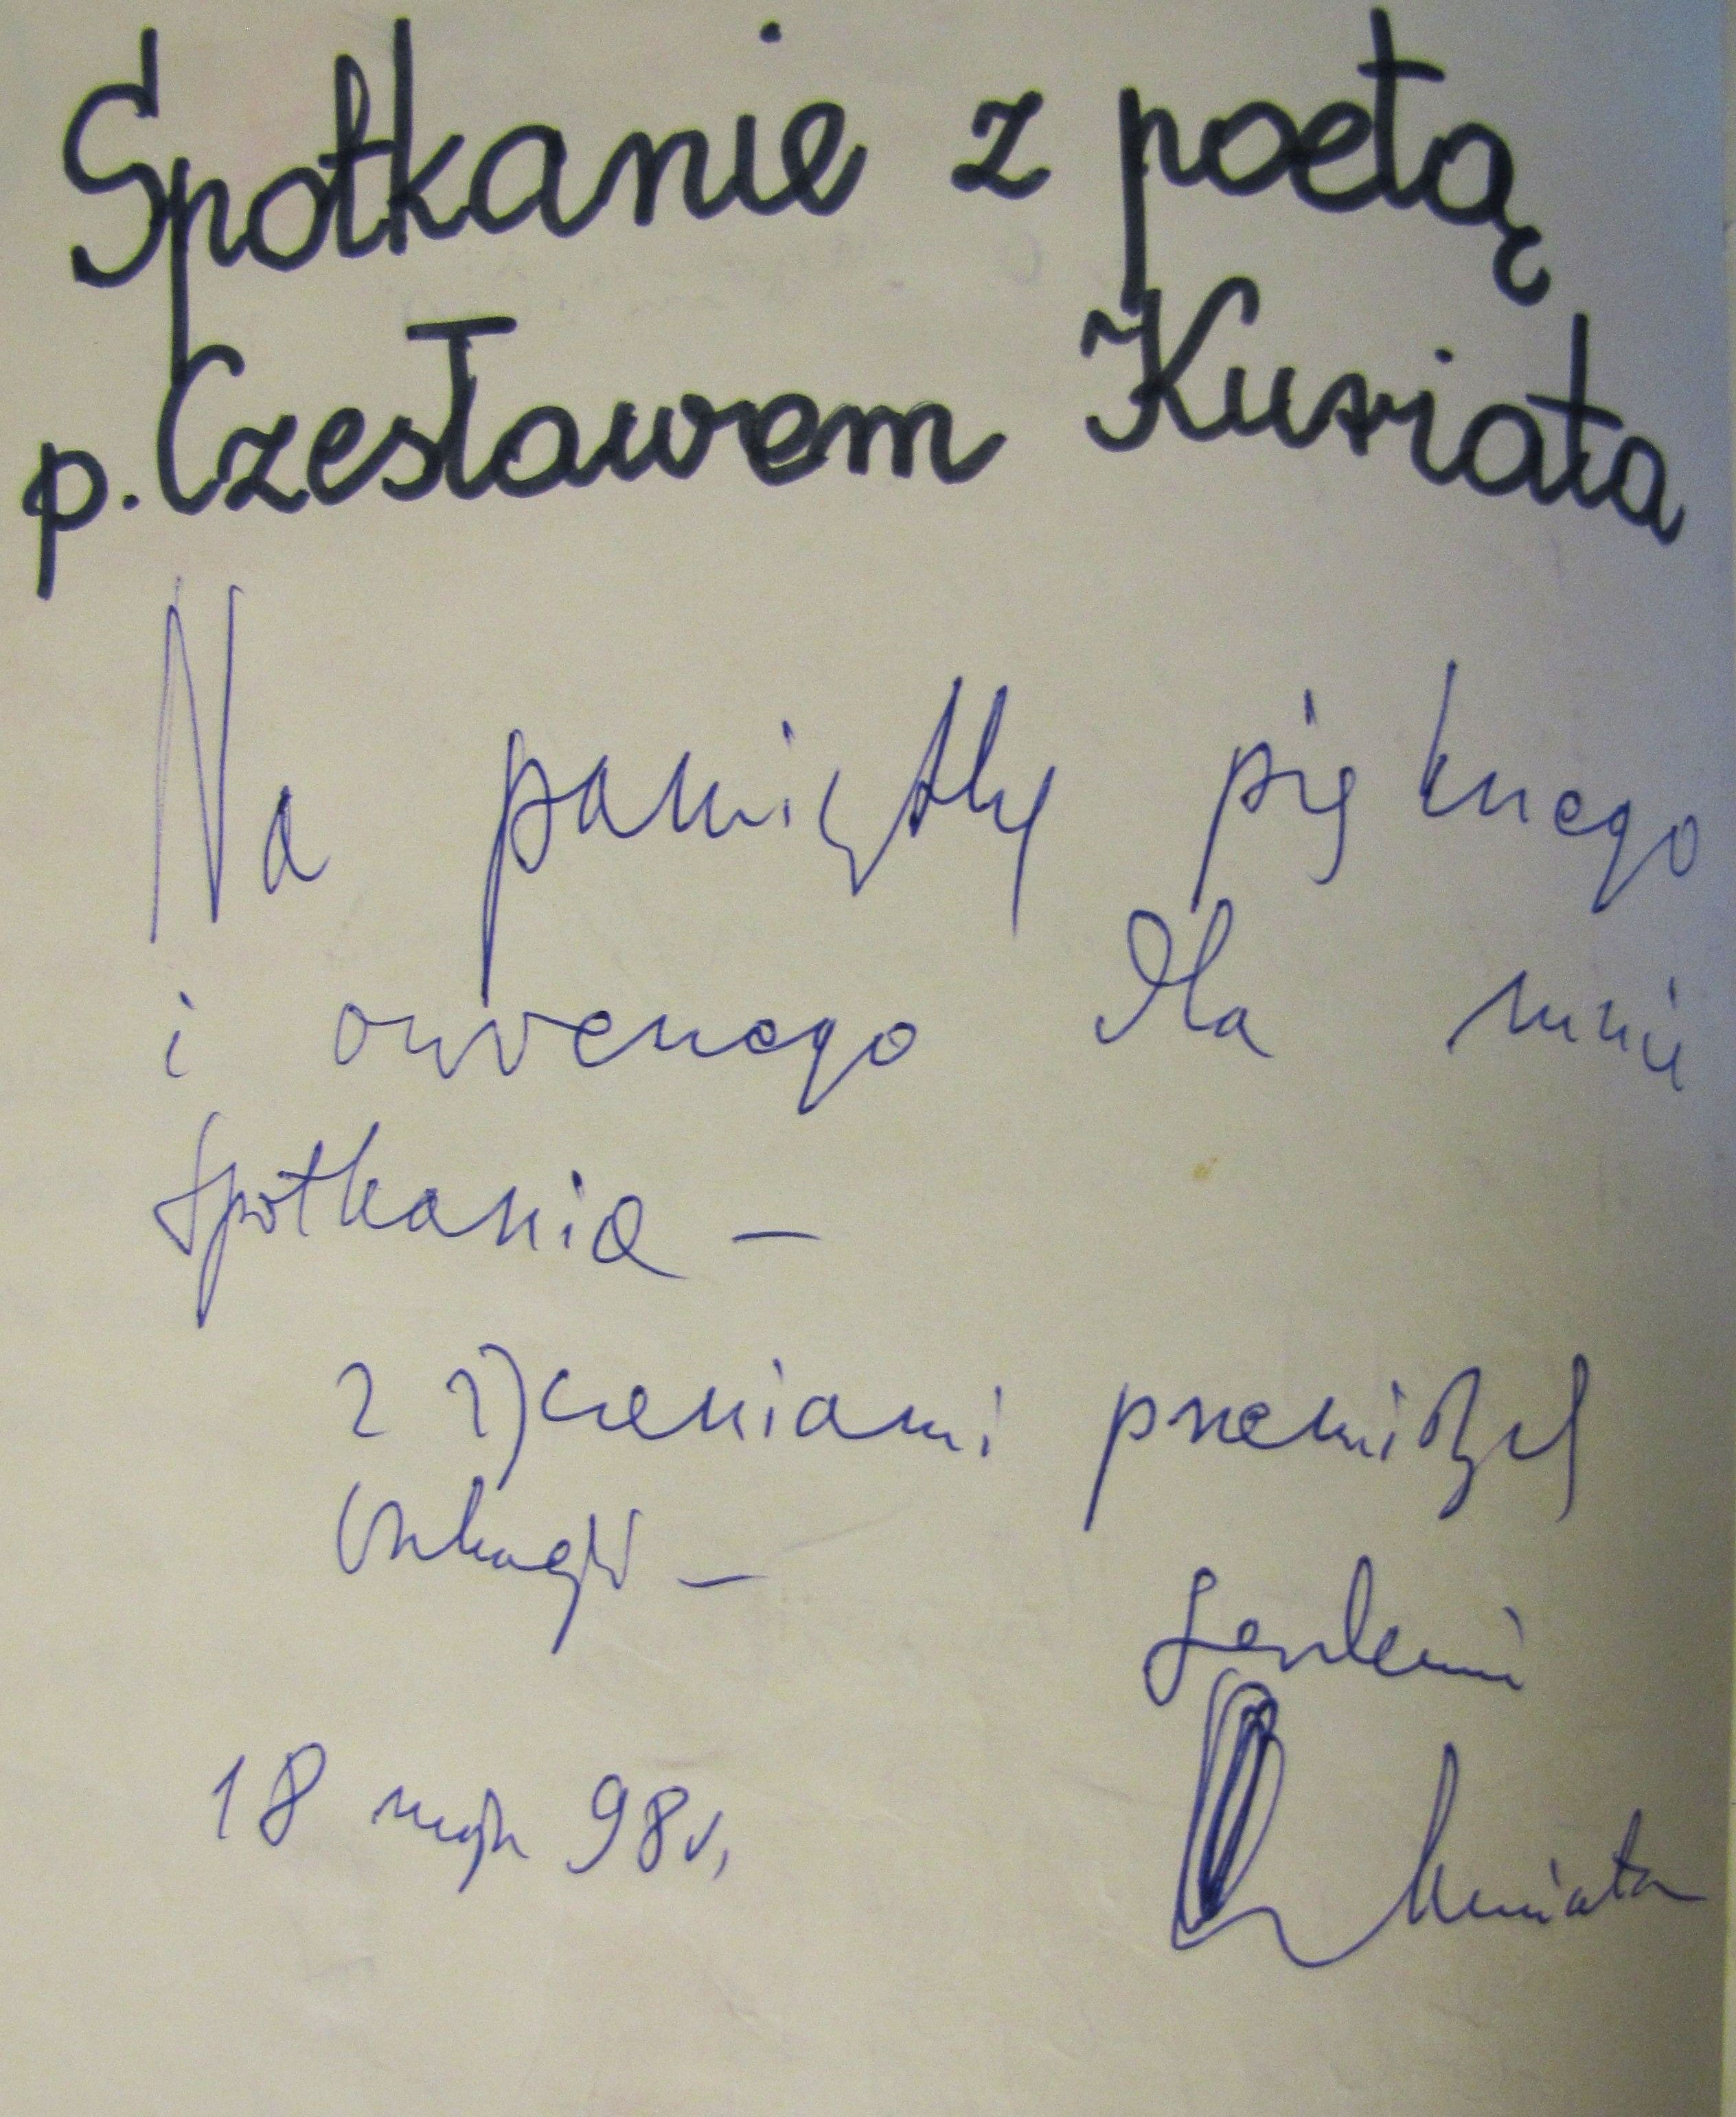 Spotkanie z poetą
p. Czesławem Kuriata
Na pamiątkę pięknego
i owocnego dla mnie
spotkania -
z życzeniami
-
serdecznie
18 maja 98 r.
Kuriata